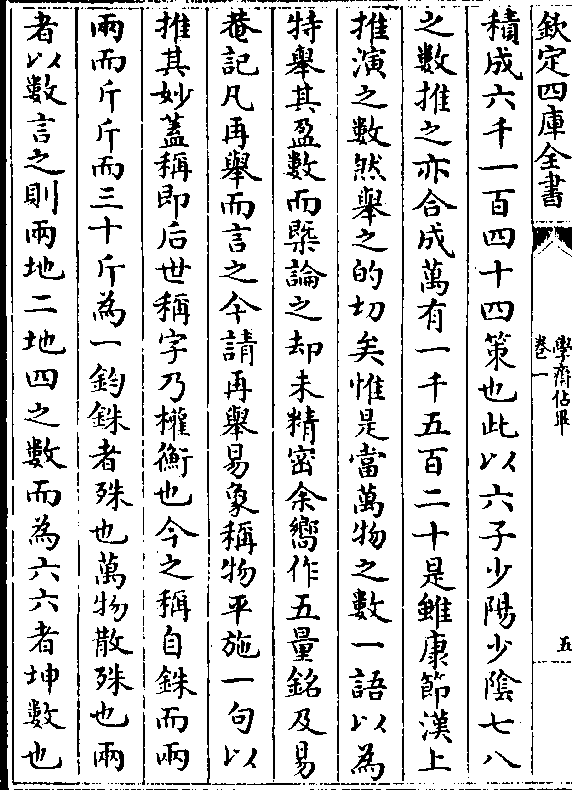 欽定四庫全書
學齋佔畢
卷一
五
積成六千一百四十四策也此以六子少陽少陰七八
之數推之亦合成萬有一千五百二十是雖康節漢上
推演之數然舉之的切矣惟是當萬物之數一語以為
特舉其盈數而槩論之却未精密余嚮作五量銘及易
菴記凡再舉而言之今請再舉易象稱物平施一句以
推其妙蓋稱即后世稱字乃權衡也今之稱自銖而兩
兩而斤斤而三十斤為一鈞銖者殊也萬物散殊也兩
者以數言之則兩地二地四之數而為六六者坤數也